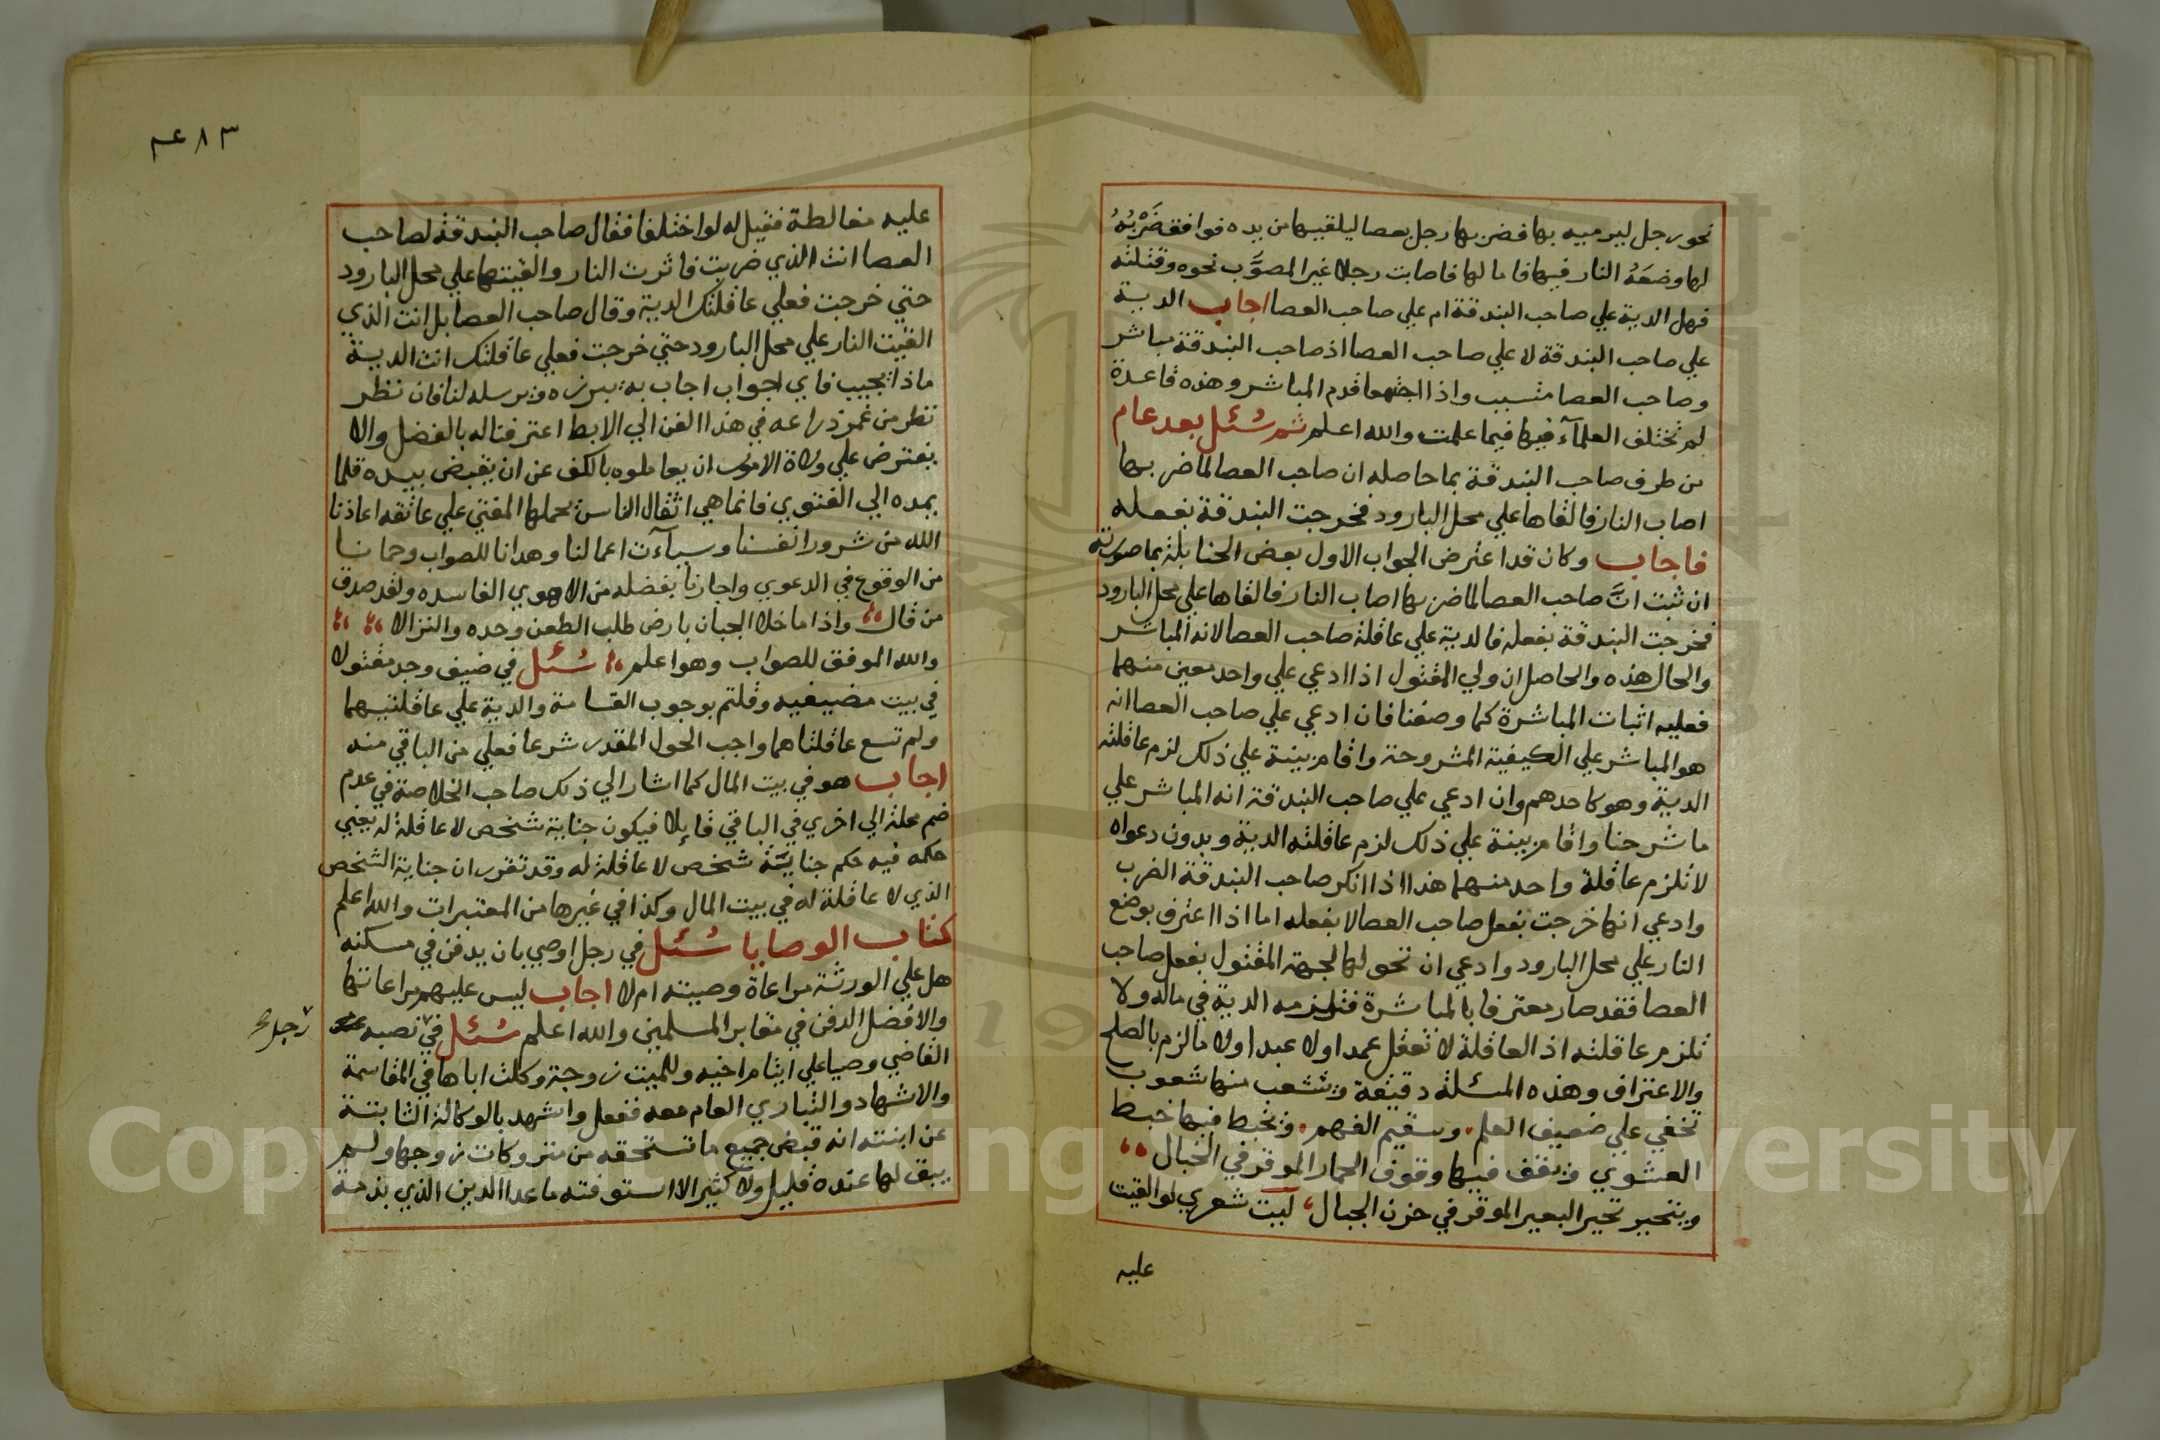 نحو رجل ليرميه بها فضربها رجل بعصا ليلقيها من يده فوافق ضَرْبُهُ
لها وضعَهُ النار فيها فامالها فاصابت رجلا غير المصوَّب نحوه وقتلته
فهل الدية علي صاحب البندقة ام علي صاحب العصا اجاب الدية
علي صاحب البندقة لا علي صاحب العصا اذ صاحب البندقة مباشر
وصاحب العصا متسبب واذا اجتمعا قدم المباشر وهذه قاعدة
لم تختلف العلمآء فيها فيما علمت والله اعلم ثم سُئل بعد عام
من طرف صاحب البندقة بما حاصله ان صاحب العصا لما ضربها
اصاب النار فالقاها علي محل البارود فخرجت البندقة بفعله
فاجاب وكان قد اعترض الجواب الاول بعض الحنابلة بما صورته
ان ثبت انَّ صاحب العصا لما ضربها اصاب النار فالقاها علي محل البارود
فخرجت البندقة بفعله فالدية علي عاقلة صاحب العصا لانه المباشر
والحال هذه والحاصل ان ولي المقتول اذا ادعي علي واحد معين منهما
فعليه اثبات المباشرة كما وصفنا فان ادعي علي صاحب العصا انه
هو المباشر علي الكيفية المشروحة واقام بينة علي ذلك لزم عاقلته
الدية وهو كاحدهم وان ادعي علي صاحب البندقة انه المباشر علي
ما شرحنا واقام بينة علي ذلك لزم عاقلته الدية وبدون دعواه
لا تلزم عاقلة واحد منهما هذا اذا انكر صاحب البندقة الضرب
وادعي انها خرجت بفعل صاحب العصا لا بفعله اما اذا اعترف بوضع
النار علي محل البارود وادعي ان تحولها لجهة المقتول بفعل صاحب
العصا فقد صار معترفا بالمباشرة فتلزمه الدية في ماله ولا
تلزم عاقلته اذ العاقلة لا تعقل عمدا ولا عبدا ولا ما لزم بالصلح
والاعتراف وهذه المسئلة دقيقة وتتشعب منها شعوب
تخفي علي ضعيف العلم، وسقيم الفهم، ويخبط فيها خبط
العشوي ويقف فيها وقوف الحمار الموقر في الخبال ،،
ويتحير تحير البعير الموقر في حزن الجبال، ليت شعري لو القيت
عليه
٤٨٣
عليه مغالطة فقيل له لو اختلفا فقال صاحب البندقة لصاحب
العصا انت الذي ضربت فاثرت النار والقيتها علي محل البارود
حتي خرجت فعلي عاقلتك الدية وقال صاحب العصا بل انت الذي
القيت النار علي محل البارود حتي خرجت فعلي عاقلتك انت الدية
ماذا يجيب فاي جواب اجاب به يبرزه ويرسله لنا فان نظر
نظر من غمر ذراعه في هذا الفن الي الابط اعترفنا له بالفضل والا
يفترض علي ولاة الامور ان يعاملوه بالكف عن ان يقبض بيده قلما
يمده الي الفتوي فانما هي اثقال الناس يحملها المفتي علي عاتقه اعاذنا
الله من شرور انفسنا وسيآءت اعمالنا وهدانا للصواب وحمانا
من الوقوع في الدعوي واجارنا بفضله من الاهوي الفاسده ولقد صدق
من قال ،، واذا ما خلا الجبان بارض طلب الطعن وحده والنزالا ،، ،،
والله الموفق للصواب وهو اعلم، سُئل في ضيف وجد مقتولا
في بيت مضيفيه وقلتم بوجوب القسامة والدية علي عاقلتيهما
ولم تسع عاقلتاهما واجب الحول المقدر شرعا فعلي من الباقي منه
اجاب هو في بيت المال كما اشار الي ذلك صاحب الخلاصة في عدم
ضم محلة الي اخري في الباقي قايلا فيكون جناية شخص لا عاقلة له يعني
حكمه فيه حكم جناية شخص لا عاقلة له وقد تقرر ان جناية الشخص
الذي لا عاقلة له في بيت المال وكذا في غيرها من المعتبرات والله اعلم
كتاب الوصايا سُئل في رجل اوصي بان يدفن في مسكنه
هل علي الورثة مراعاة وصيته ام لا اجاب ليس عليهم مراعاتها
والافضل الدفن في مقابر المسلمين والله اعلم سُئل في نصبه
رجل
القاضي وصيا علي ايتام اخيه وللميت زوجة وكلت اباها في المقاسمة
والاشهاد والتباري العام معه ففعل واشهد بالوكالة الثابتة
عن ابنته انه قبض جميع ما تستحقه من متروكات زوجها ولم
يبق لها عنده قليل ولا كثير الا استوفته ما عدا الدين الذي بذمة
Copyright © King Saud University